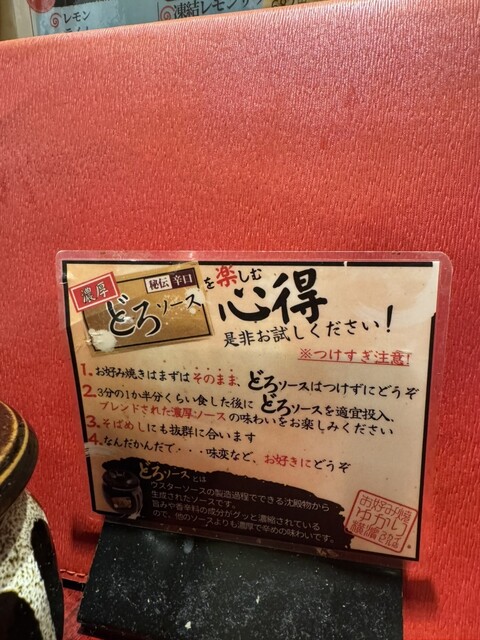 レモン
凍結レモンサ
濃厚
秘伝 辛口
どろソース
を楽しむ
心得
是非お試しください!
※つけすぎ注意!
1. お好み焼きはまずはそのまま、どろソースはつけずにどうぞ
2. 3分の1か半分くらい食した後にどろソースを適宜投入、
ブレンドされた濃厚ソースの味わいをお楽しみください
3. そばめしにも抜群に合います
4. なんだかんだで・・・味変など、お好きにどうぞ
どろソースとは
ウスターソースの製造過程でできる沈殿物から
生成されたソースです。
旨みや香辛料の成分がグッと濃縮されている
ので、他のソースよりも濃厚で辛めの味わいです。
お好み焼
ゆかり